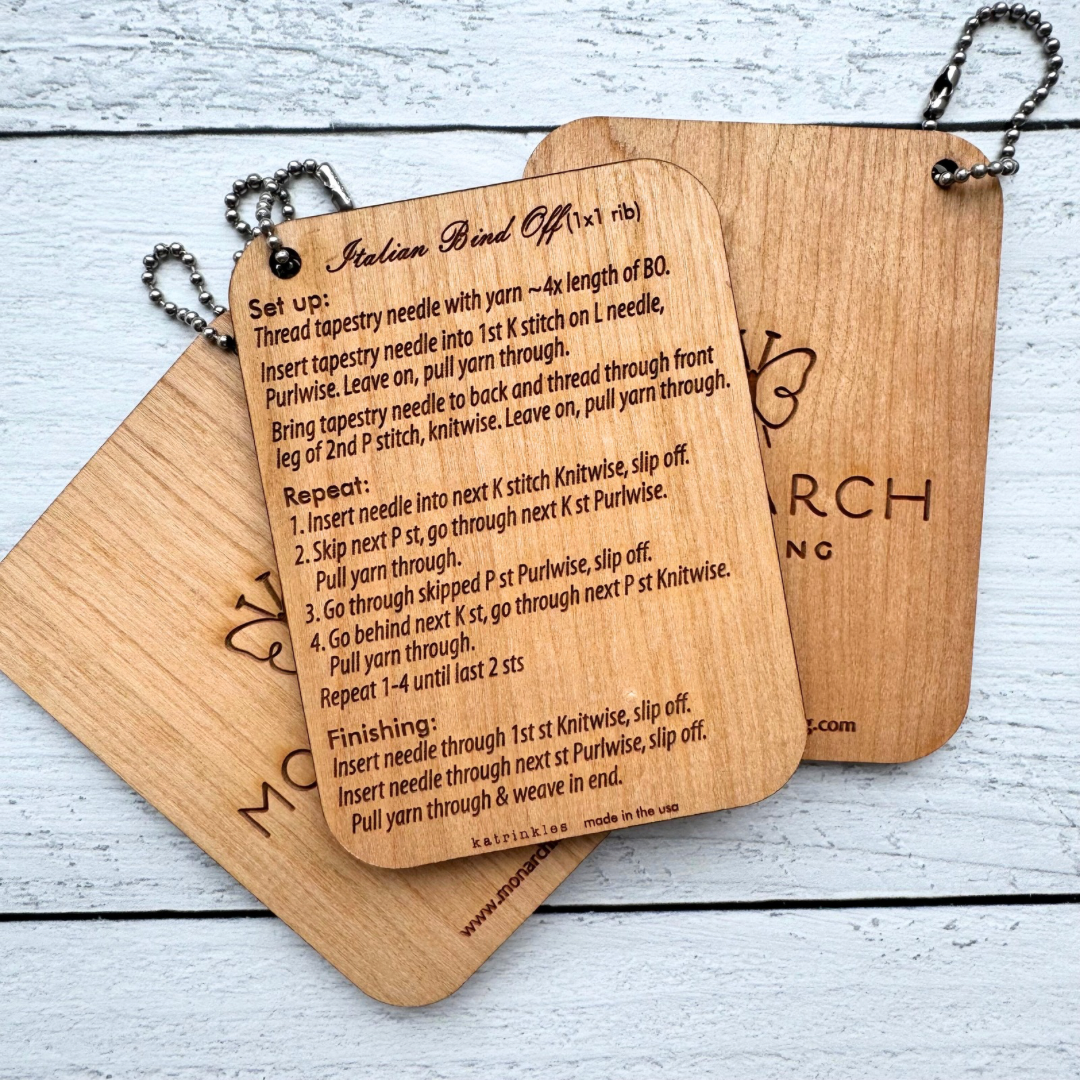 Italian Bind Off (1x1 rib)
Set up:
Thread tapestry needle with yarn ~4x length of BO.
Insert tapestry needle into 1st K stitch on L needle,
Purlwise. Leave on, pull yarn through.
Bring tapestry needle to back and thread through front
leg of 2nd P stitch, knitwise. Leave on, pull yarn through.
Repeat:
1. Insert needle into next K stitch Knitwise, slip off.
2. Skip next P st, go through next K st Purlwise.
Pull yarn through.
3. Go through skipped P st Purlwise, slip off.
4. Go behind next K st, go through next P st Knitwise.
Pull yarn through.
Repeat 1-4 until last 2 sts
Finishing:
Insert needle through 1st st Knitwise, slip off.
Insert needle through next st Purlwise, slip off.
Pull yarn through & weave in end.
katrinkles made in the usa
ARCH
NG
g.com
MO
www.monarch